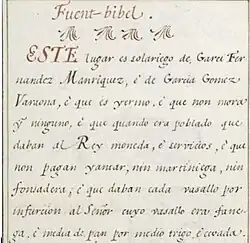 Fuent-bibel.
ESTE lugar es solariego de, Garci Fer
nandez Manriquez, è de Garcia Gomez
Varuona, è que es yermo, è que non mora
y ninguno, è que quando era poblado que
daban al Rey moneda, è servicios, è que
non pagan yantar, nin martiniega, nin
fonsadera; è que daban cada vasallo por
infurcion al Señor cuyo vasallo era fane
ga, è media de pan por medio trigo, è cevada.